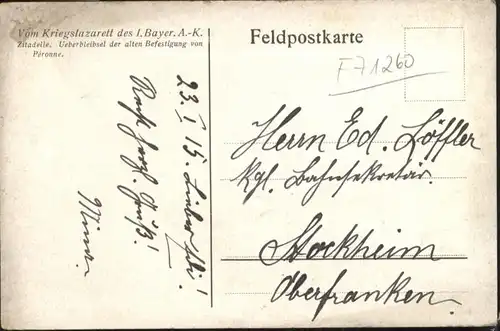 Vom Kriegslazarett des I. Bayer. A.-K.
Zitadelle. Ueberbleibsel der alten Befestigung von
Péronne.
23. I 15.
Feldpostkarte
F71260
Herrn Ed. Löffler
Kgl. Bahnsekretär.
Stockheim
Oberfranken.